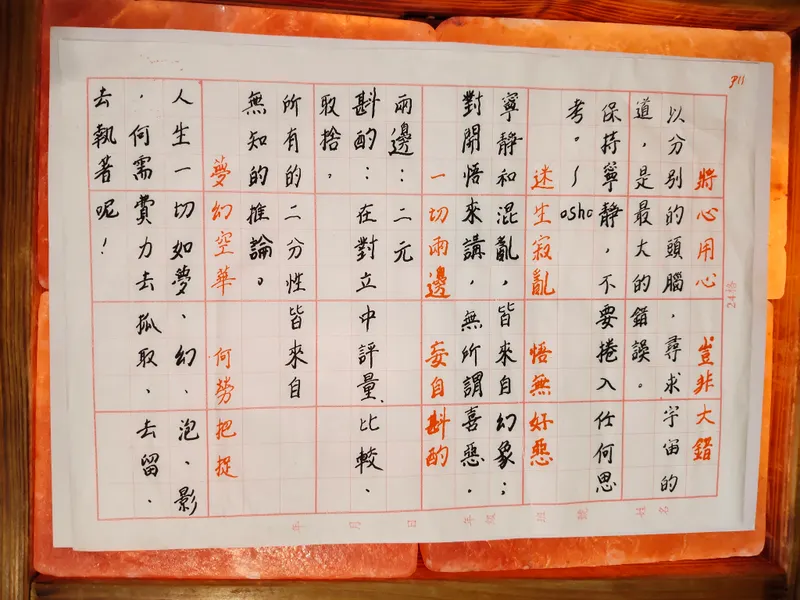 P11
將心用心 豈非大錯
以分別的頭腦，尋求宇宙的
道，是最大的錯誤。
保持寧靜，不要捲入任何思
考。～osho
迷生寂亂 悟無好惡
寧靜和混亂，皆來自幻象；
對開悟來講，無所謂喜惡。
一切兩邊 妄自斟酌
兩邊：二元
斟酌：在對立中評量、比較、
取捨，
所有的二分性皆來自
無知的推論。
夢幻空華 何勞把捉
人生一切如夢、幻、泡、影
，何需費力去抓取、去留、
去執著呢！
24格
姓名
號
班
年級
年 月 日